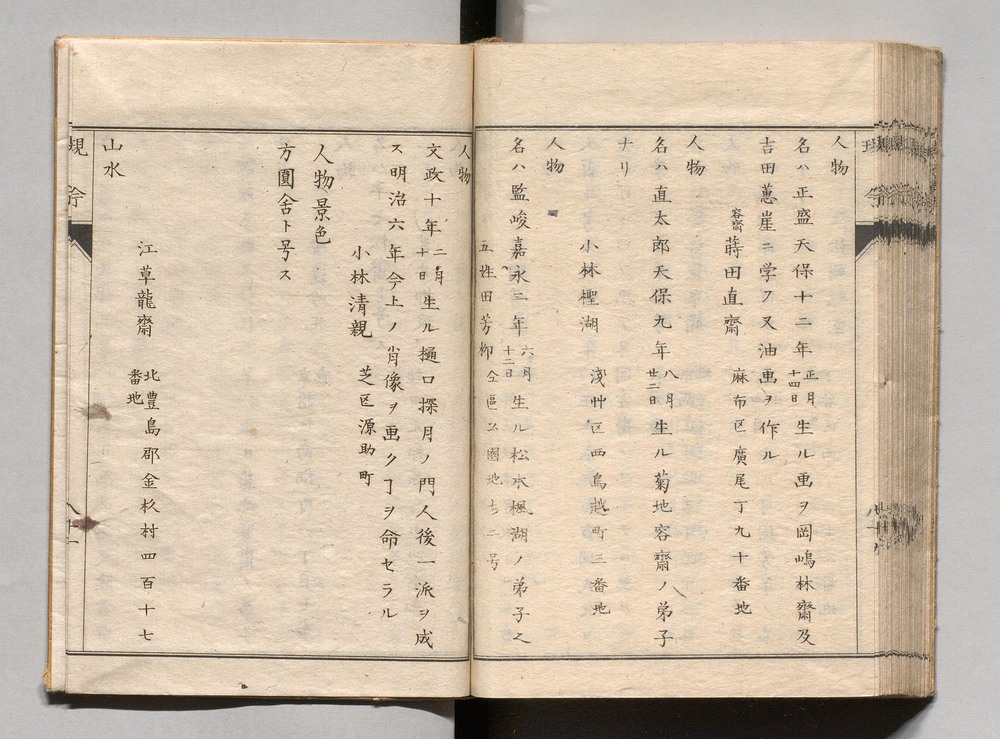 現今
人物
名ハ正盛天保十二年正月十四日生ル画ヲ岡嶋林齋及
吉田蕙崖ニ学フ又油画ヲ作ル
容齋 蒔田直齋 麻布区廣尾丁九十番地
人物
名ハ直太郎天保九年八月廿二日生ル菊地容齋ノ弟子
ナリ
小林檉湖 淺艸区西鳥越町三番地
人物
名ハ監峻嘉永二年六月十二日生ル松本楓湖ノ弟子之
五姓田芳柳 仝區公園地七二号
人物
文政十年二月十日生ル樋口探月ノ門人後一派ヲ成
ス明治六年今上ノ肖像ヲ画クヿヲ命セラル
小林清親 芝区源助町
人物景色
方圓舎ト号ス
江草龍齋 北豊島郡金杉村四百十七番地
山水
現今 八十一